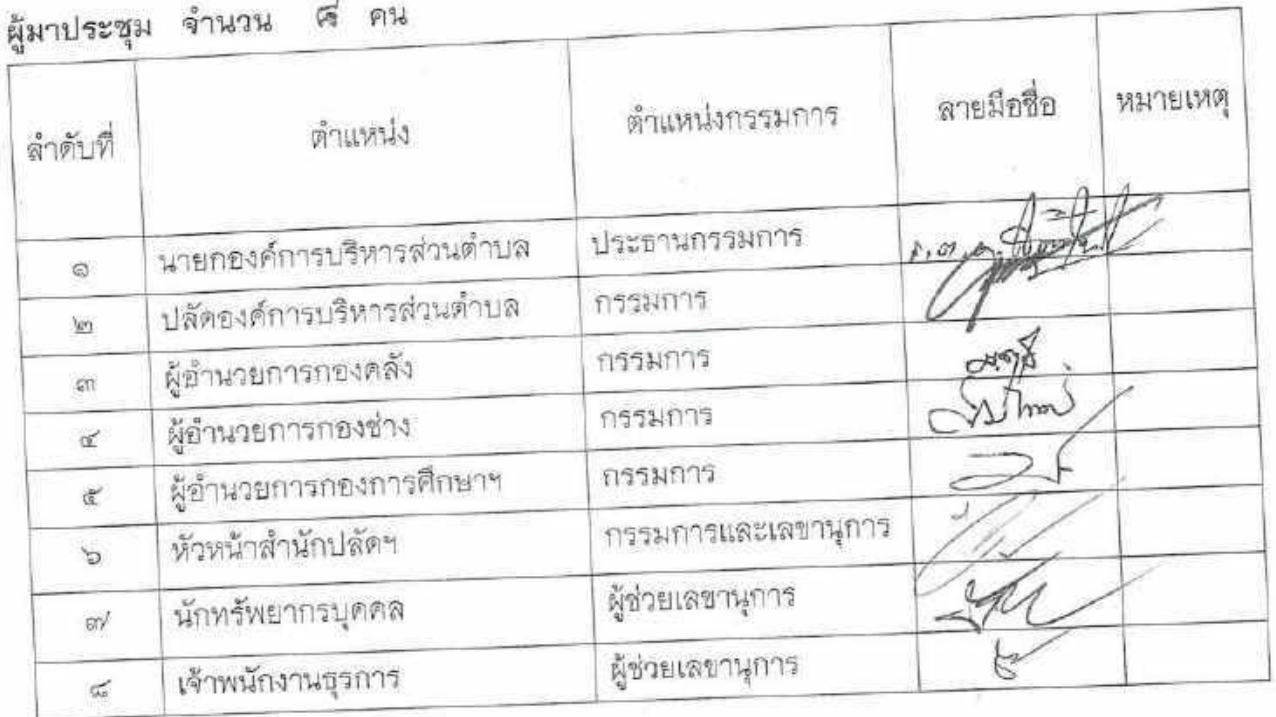 ผู้มาประชุม จำนวน ๘ คน
ลำดับที่ ตำแหน่ง ตำแหน่งกรรมการ ลายมือชื่อ หมายเหตุ
๑ นายกองค์การบริหารส่วนตำบล ประธานกรรมการ
๒ ปลัดองค์การบริหารส่วนตำบล กรรมการ
๓ ผู้อำนวยการกองคลัง กรรมการ
๔ ผู้อำนวยการกองช่าง กรรมการ
๕ ผู้อำนวยการกองการศึกษาฯ กรรมการ
๖ หัวหน้าสำนักปลัดฯ กรรมการและเลขานุการ
๗ นักทรัพยากรบุคคล ผู้ช่วยเลขานุการ
๘ เจ้าพนักงานธุรการ ผู้ช่วยเลขานุการ